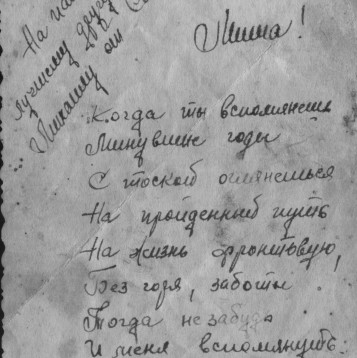 На па
лучшему другу
Михаилу от
Миша!
Когда ты вспомянешь
Минувшие годы
С тоской оглянешься
На пройденный путь
На жизнь фронтовую,
Без горя, заботы
Тогда не забудь
И меня вспомянуть.